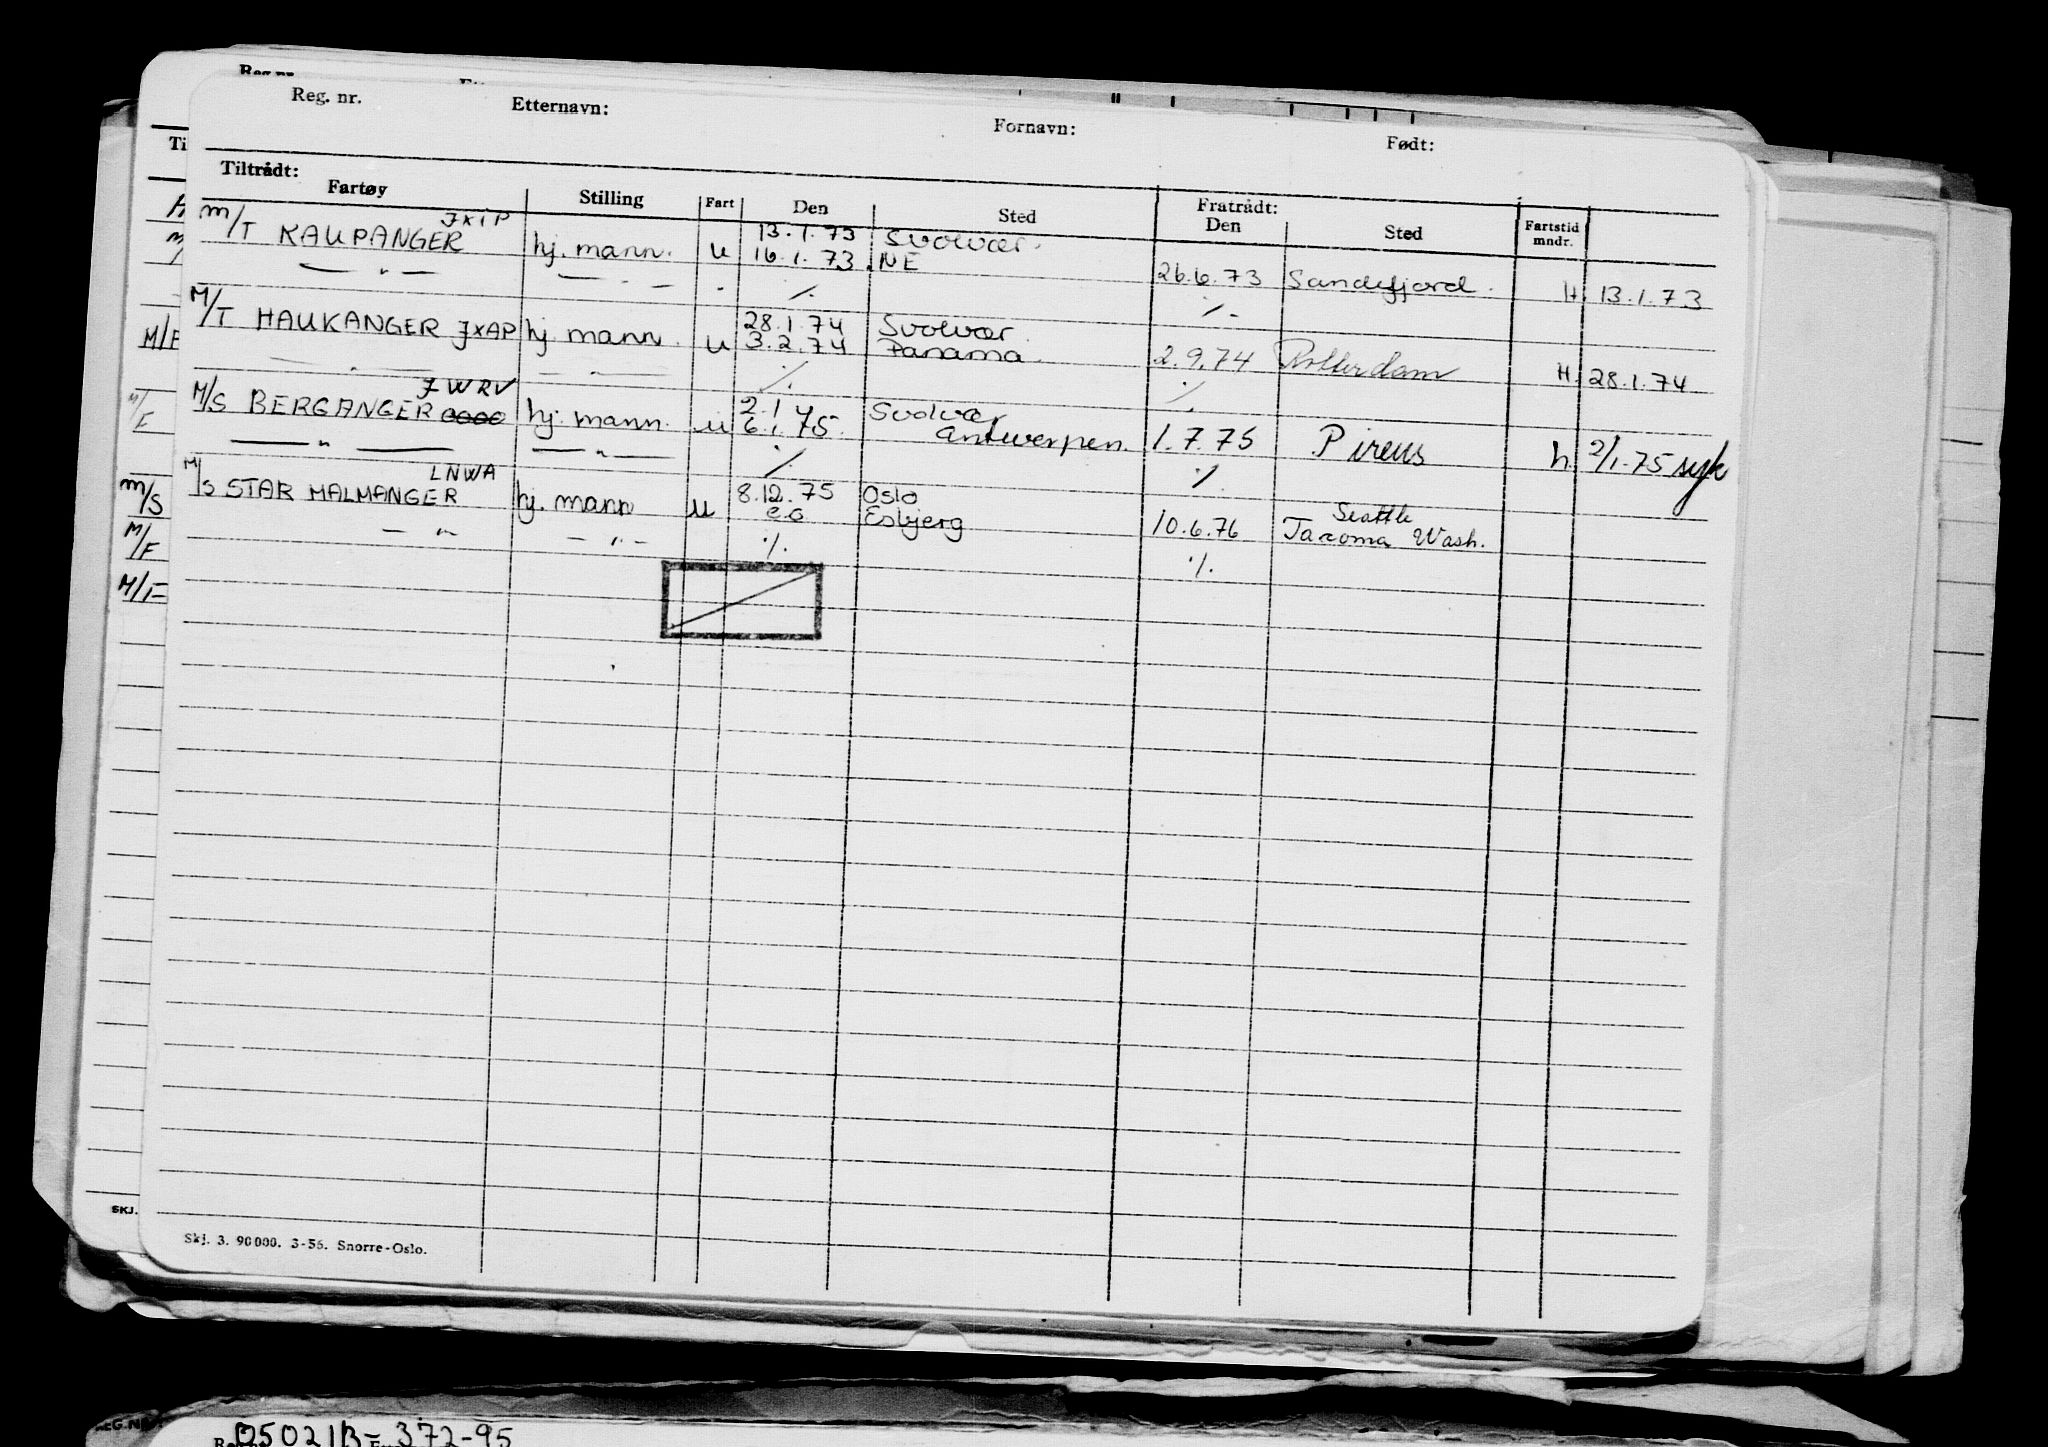 Reg. nr. Etternavn: Fornavn: Født:
Tiltrådt: Fratrådt:
Fartøy Stilling Fart Den Sted Den Sted Fartstid mndr.
JXIP 13.1.73 Svolvær.
M/T KAUPANGER hj. mann. u 16.1.73 NE 26.6.73 Sandefjord. H. 13.1.73
— " — — " — " ·/. ·/.
28.1.74 Svolvær
M/T HAUKANGER JXAP hj. mann. u 3.2.74 Panama. 2.9.74 Rotterdam H. 28.1.74
— " — — " — ·/. ·/.
JWRV 2.1 Svolvær
M/S BERGANGER hj. mann. u 6.1.75. Antwerpen. 1.7.75 Pireus h. 2/1.75 syk
— " — — " — ·/. ·/.
LNWA 8.12.75 Oslo Seattle
M/S STAR MALMANGER hj. mann u ca Esbjerg 10.6.76 Tacoma Wash.
— " — — " — ·/. ·/.
Skj. 3. 90000. 3-56. Snorre-Oslo.
Reg. nr.
Ti
M/
M/F
M/F
M/S
M/F
M/F
SKJ.
REG. N
050211B- 372-95